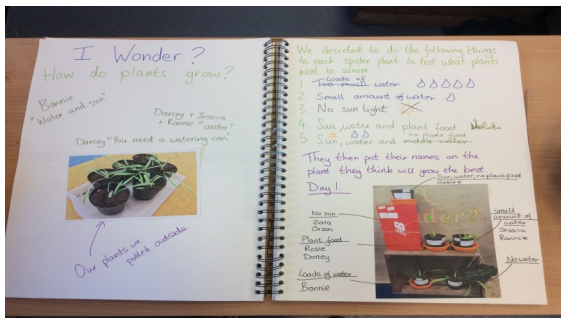 I Wonder?
How do plants grow?
Bonnie
"Water and sun"
Darcey + Jessica
+ Ronnie "water"
Darcey "You need a watering can."
Our plants we
potted outside
We decided to do the following things
to each spider plant to test what plants
need to survive
1. Loads of
Too much water
2. Small amount of water
3. No sun light
4. Sun, water and plant food
5. Sun, water and no plant food
middle water
They then put their names on the
plant they think will grow the best
Day 1.
Sun, water, no plant food
No sun
Zara
Orson
Plant food
Rosie
Darcey
Loads of water
Bonnie
small
amount of
water
Jessica
Ronnie
No water